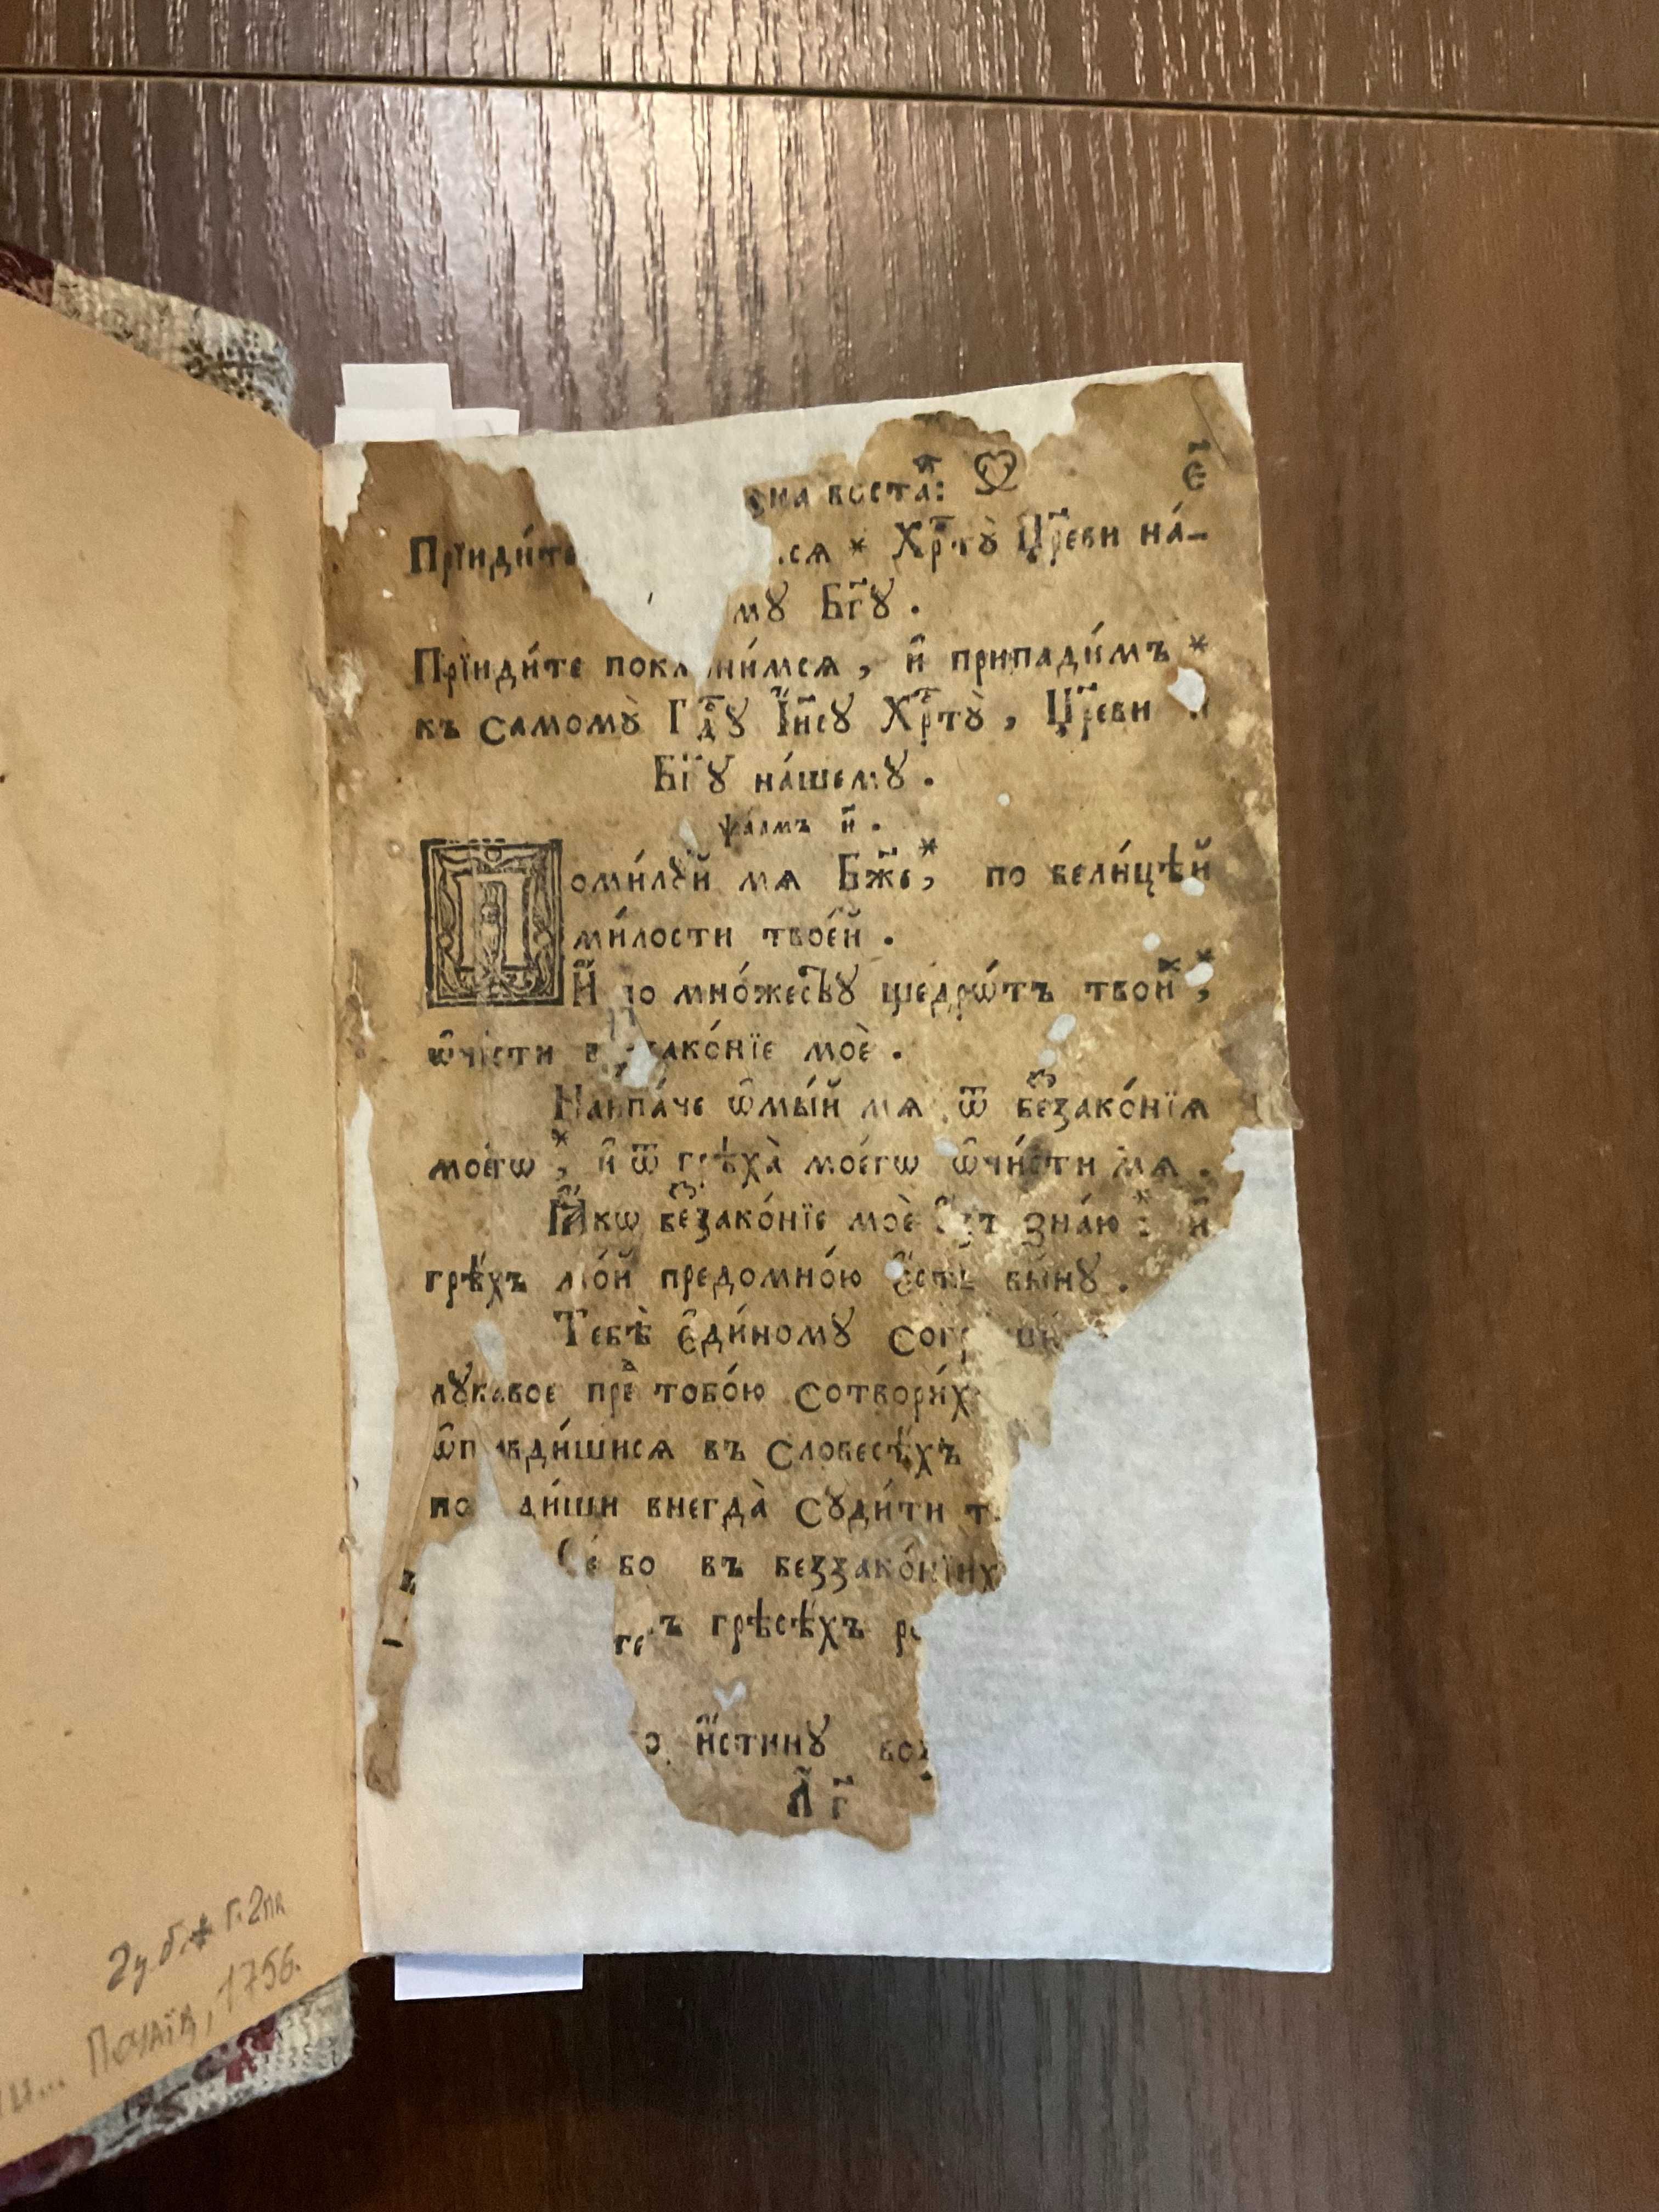 воста̑: є҃
Прїиди́те сѧ * Хрⷭ҇тꙋ̀ Цр҃еви на́-
мꙋ Бг҃ꙋ .
Прїиди́те и҆ припади́мъ *
къ самомꙋ̀ Гдⷭ҇ꙋ І҆и҃сꙋ Хрⷭ҇тꙋ̀ , Цр҃еви
Бг҃ꙋ на́шемꙋ .
ѱало́мъ н҃ .
Поми́лꙋй мѧ Бж҃е *, по вели́цѣй
ми́лости твое́й .
И҆ по мно́жествꙋ щедрѡ́тъ твои́хъ *,
ѡ҆чи́сти моѐ .
Наипа́че ѡ҆мы́й мѧ ѿ беззако́нїѧ
моегѡ̀ *, и҆ ѿ грѣха̀ моегѡ̀ ѡ҆чи́сти мѧ .
Ꙗ҆́кѡ беззако́нїе моѐ зна́ю *: и҆
грѣ́хъ мо́й предомно́ю є҆́сть вы́нꙋ .
Тебѣ̀ є҆ди́номꙋ
лꙋка́вое преⷣ тобо́ю
въ словесѣ́хъ
внегда̀ сꙋди́ти
Се́ бо въ беззако́нїихъ
грѣсѣ́хъ
и҆́стинꙋ
А҃ г҃
2 у.б. * Г. 2 пл
Почаїв, 1756.